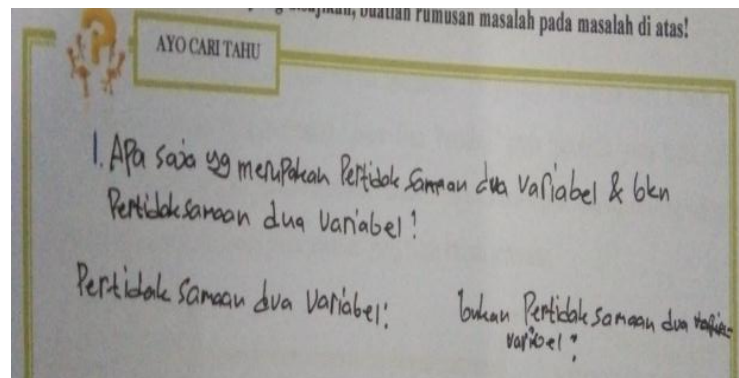 buatlah rumusan masalah pada masalah di atas!
AYO CARI TAHU
1. Apa saja yg merupakan Pertidak samaan dua variabel & bkn
Pertidaksamaan dua variabel!
Pertidak samaan dua variabel:
bukan Pertidak samaan dua
variabel: